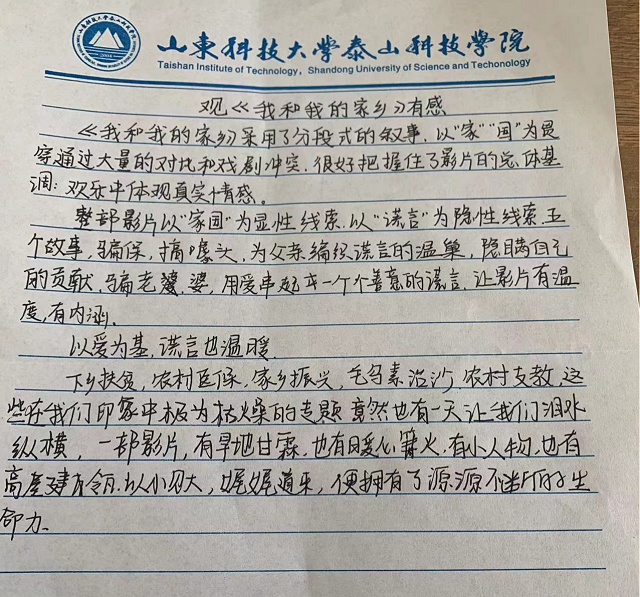 山东科技大学泰山科技学院
Taishan Institute of Technology, Shandong University of Science and Techonology
观《我和我的家乡》有感
《我和我的家乡》采用了分段式的叙事，以"家""国"为贯
穿通过大量的对比和戏剧冲突，很好把握住了影片的总体基
调：欢乐中体现真实情感。
整部影片以"家国"为显性线索，以"谎言"为隐性线索，五
个故事，骗保，搞噱头，为父亲编织谎言的温巢，隐瞒自己
的贡献，骗老婆，用爱串起一个个善意的谎言，让影片有温
度，有内涵。
以爱为基，谎言也温暖
下乡扶贫，农村医保，家乡振兴，毛乌素治沙，农村支教，这
些在我们印象中极为枯燥的专题竟然也有一天让我们泪水
纵横，一部影片，有旱地甘霖，也有暖心篝火，有小人物，也有
高屋建瓴，以小见大，娓娓道来，便拥有了源源不断的生
命力。